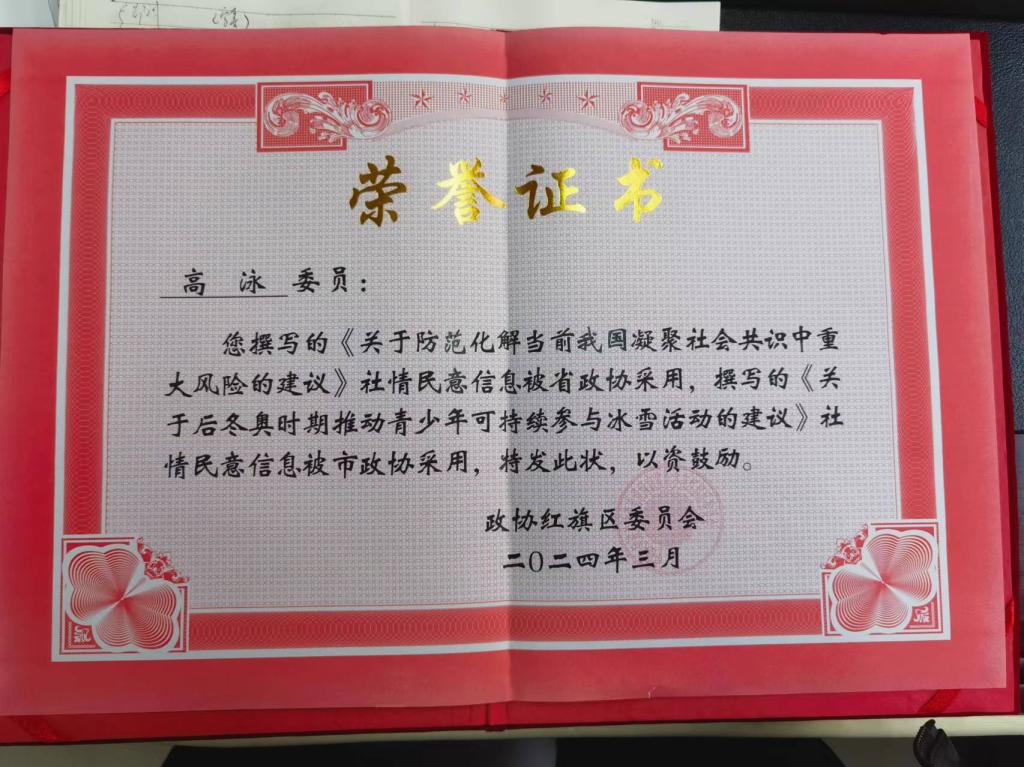 荣誉证书
高 泳 委员：
您撰写的《关于防范化解当前我国凝聚社会共识中重
大风险的建议》社情民意信息被省政协采用，撰写的《关
于后冬奥时期推动青少年可持续参与冰雪活动的建议》社
情民意信息被市政协采用，特发此状，以资鼓励。
政协红旗区委员会
二〇二四年三月